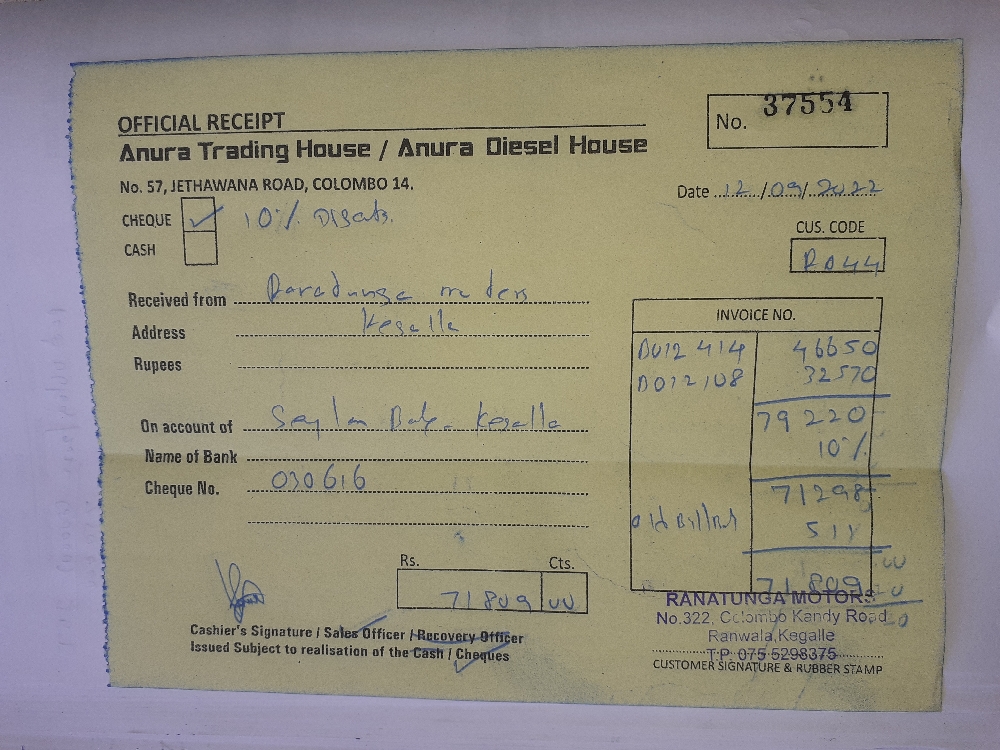 OFFICIAL RECEIPT
No. 37554
Anura Trading House / Anura Diesel House
No. 57, JETHAWANA ROAD, COLOMBO 14.
Date 12/09/2022
CHEQUE ✓ 10%
CASH
CUS. CODE
R044
Received from
Address Kegalle
Rupees
INVOICE NO.
B012414 46650
B012108 32570
79220
10%
71298
511
71809
On account of Kegalle
Name of Bank
Cheque No. 030616
Rs. Cts.
71809 00
Cashier's Signature / Sales Officer / Recovery Officer
Issued Subject to realisation of the Cash / Cheques
RANATUNGA MOTORS
No.322, Colombo Kandy Road
Ranwala,Kegalle
T.P: 075 5298375
CUSTOMER SIGNATURE & RUBBER STAMP